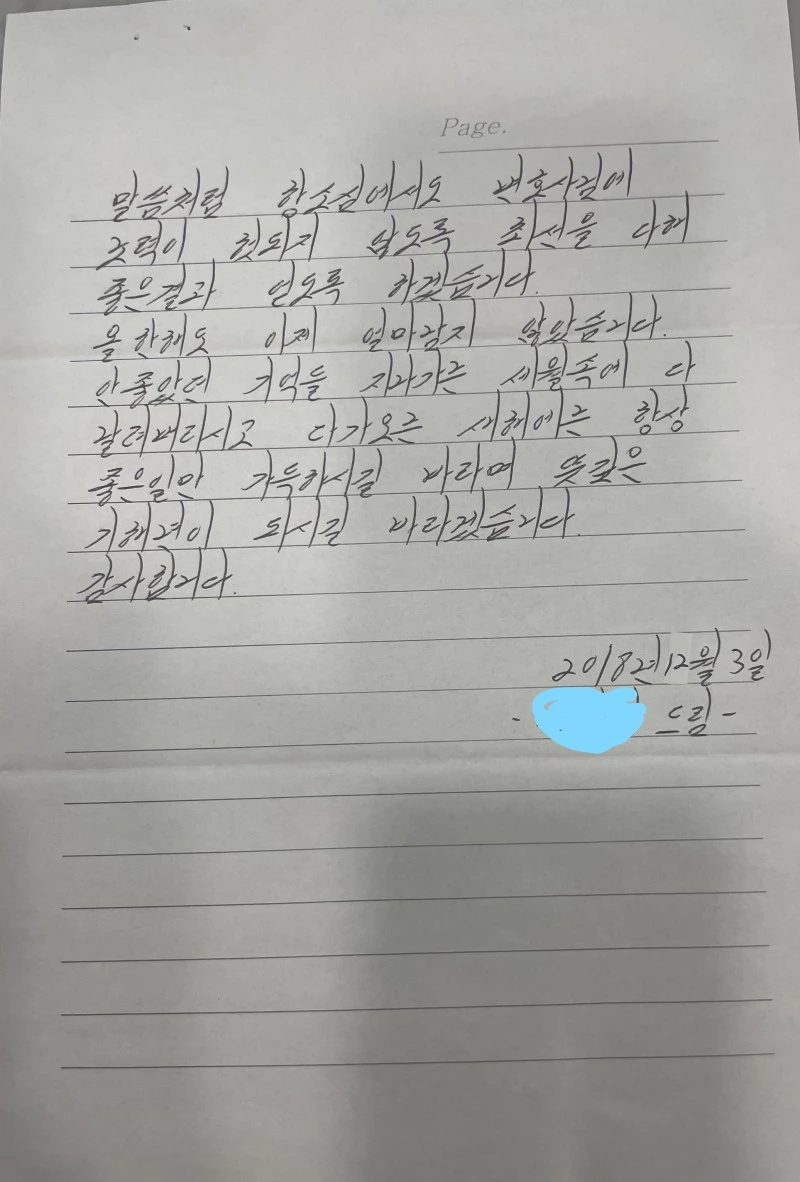 Page.
말씀처럼 항소심에서도 변호사님에
노력이 헛되지 않도록 최선을 다해
좋은결과 얻도록 하겠습니다.
올 한해도 이제 얼마남지 않았습니다.
안좋았던 기억들 지나가는 세월속에 다
날려버리시고 다가오는 새해에는 항상
좋은일만 가득하시길 바라며 뜻깊은
기해년이 되시길 바라겠습니다.
감사합니다.
2018년 12월 3일
- 드림 -